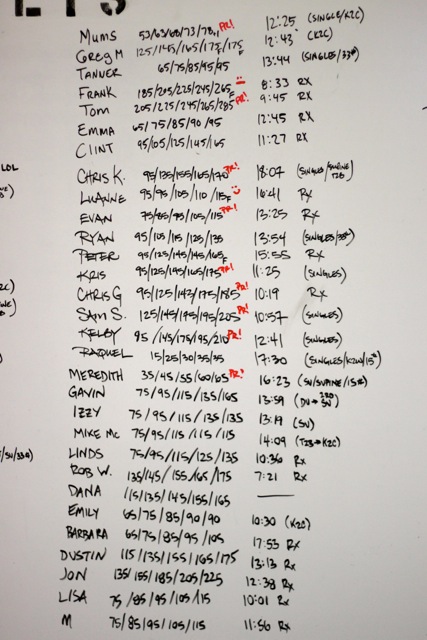 MUMS 53/63/68/73/78 PR! 12:25 (SINGLE/K2C)
GREG M 125/145/165/175/175F 12:43 (K2C)
TANVER 65/75/85/95/95 13:44 (SINGLES/33#)
FRANK 185/205/225/245/265F 8:33 RX
TOM 205/225/245/265/285 PR! 9:45 RX
EMMA 65/75/85/90/95 12:45 RX
CLINT 95/105/125/145/165 11:27 RX
CHRIS K. 95/135/155/165/170 PR! 18:07 (SINGLES/
LUANNE 95/95/105/110/115F 16:41 Rx
EVAN 75/85/95/105/115 PR! 13:25 Rx
RYAN 95/105/115/125/135 13:54 (SINGLES/35#)
PETER 95/125/145/145/165F 15:55 Rx
KRIS 95/125/145/165/175 PR! 11:25 (SINGLES)
CHRIS G 95/125/147/175/185 PR! 10:19 Rx
SAM S. 125/145/195/195/205 PR! 10:57 (SINGLES)
KELBY 95/145/175/195/210 PR! 12:41 (SINGLES)
RAQUEL 15/25/30/35/35 17:30 (SINGLES/K2W/15#)
MEREDITH 35/45/55/60/65 PR! 16:23 (SU/SUPINE/15#)
GAVIN 75/95/115/135/165 13:59
IZZY 75/95/115/135/135 13:19 (SU)
MIKE Mc 75/95/115/115/115 14:09 (T2B→K2C)
LINDS 75/95/115/125/135 10:36 Rx
ROB W. 135/145/155/165/175 7:21 Rx
DANA 115/135/145/155/165 —
EMILY 65/75/85/90/90 10:30 (K2C)
BARBARA 65/75/85/95/105 17:53 Rx
DUSTIN 115/135/155/165/175 13:13 Rx
JON 135/155/185/205/225 12:38 Rx
LISA 75/85/95/105/115 10:01 Rx
M 75/85/95/105/115 11:56 Rx